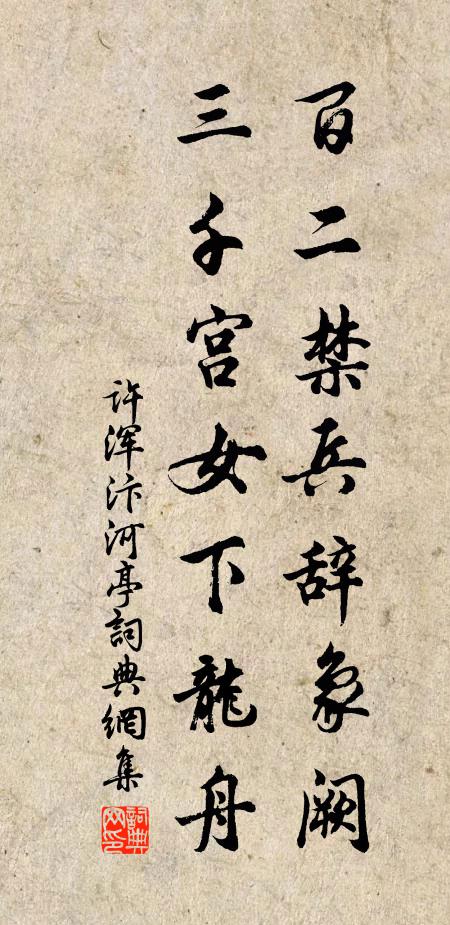 百二禁兵辞象阙
三千宫女下龍舟
许浑汴河亭詞典網集
詞典网印